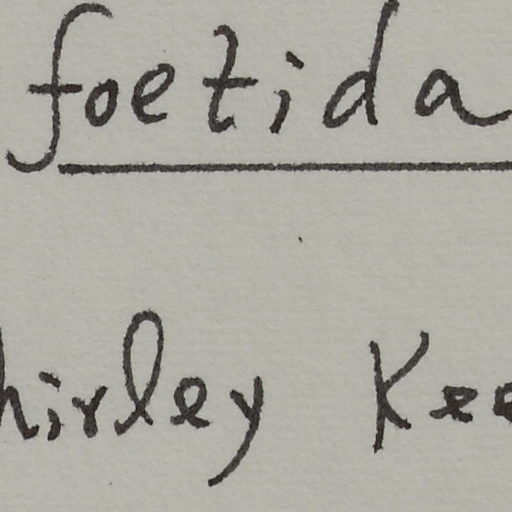 foetida
hirley Kee